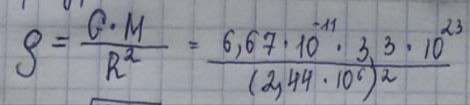 g = G · M / R² = 6,67 · 10⁻¹¹ · 3,3 · 10²³ / (2,44 · 10⁶)²